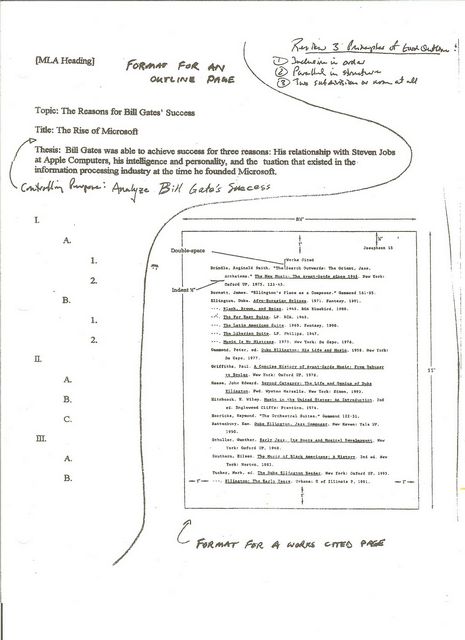 Review 3 Principles of Good Outline:
[MLA Heading]
FORMAT FOR AN
OUTLINE PAGE
① Inclusive in order
② Parallel in structure
③ Two subdivisions or none at all
Topic: The Reasons for Bill Gates' Success
Title: The Rise of Microsoft
Thesis: Bill Gates was able to achieve success for three reasons: His relationship with Steven Jobs
at Apple Computers, his intelligence and personality, and the tuation that existed in the
information processing industry at the time he founded Microsoft.
Controlling Purpose: Analyze Bill Gate's Success
I.
A.
1.
2.
B.
1.
2.
II.
A.
B.
C.
III.
A.
B.
8½"
½"
Josephson 15
1"
Double-space
Works Cited
Brindle, Reginald Smith. "The Search Outwards: The Orient, Jazz,
Indent ½"
Archaisms." The New Music: The Avant-Garde since 1945. New York:
Oxford UP, 1975. 133-45.
Burnett, James. "Ellington's Place as a Composer." Gammond 141-55.
Ellington, Duke. Afro-Eurasian Eclipse. 1971. Fantasy, 1991.
---. Black, Brown, and Beige. 1945. RCA Bluebird, 1988.
---. The Far East Suite. LP. RCA, 1965.
---. The Latin American Suite. 1969. Fantasy, 1990.
---. The Liberian Suite. LP. Philips, 1947.
---. Music Is My Mistress. 1973. New York: Da Capo, 1976.
Gammond, Peter, ed. Duke Ellington: His Life and Music. 1958. New York:
Da Capo, 1977.
Griffiths, Paul. A Concise History of Avant-Garde Music: From Debussy
to Boulez. New York: Oxford UP, 1978.
Hasse, John Edward. Beyond Category: The Life and Genius of Duke
Ellington. Fwd. Wynton Marsalis. New York: Simon, 1993.
Hitchcock, H. Wiley. Music in the United States: An Introduction. 2nd
ed. Englewood Cliffs: Prentice, 1974.
Horricks, Raymond. "The Orchestral Suites." Gammond 122-31.
Rattenbury, Ken. Duke Ellington, Jazz Composer. New Haven: Yale UP,
1990.
Schuller, Gunther. Early Jazz: Its Roots and Musical Development. New
York: Oxford UP, 1968.
Southern, Eileen. The Music of Black Americans: A History. 2nd ed. New
York: Norton, 1983.
Tucker, Mark, ed. The Duke Ellington Reader. New York: Oxford UP, 1993.
---. Ellington: The Early Years. Urbana: U of Illinois P, 1991.
1"
1"
11"
1"
FORMAT FOR A WORKS CITED PAGE